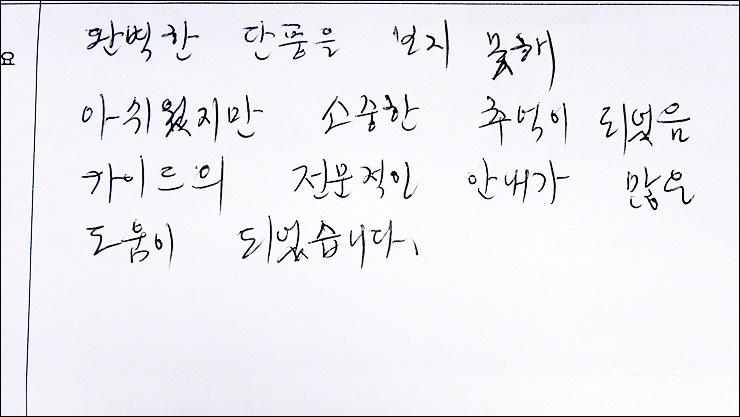 요
완벽한 단풍을 보지 못해
아쉬웠지만 소중한 추억이 되었음
가이드의 전문적인 안내가 많은
도움이 되었습니다.